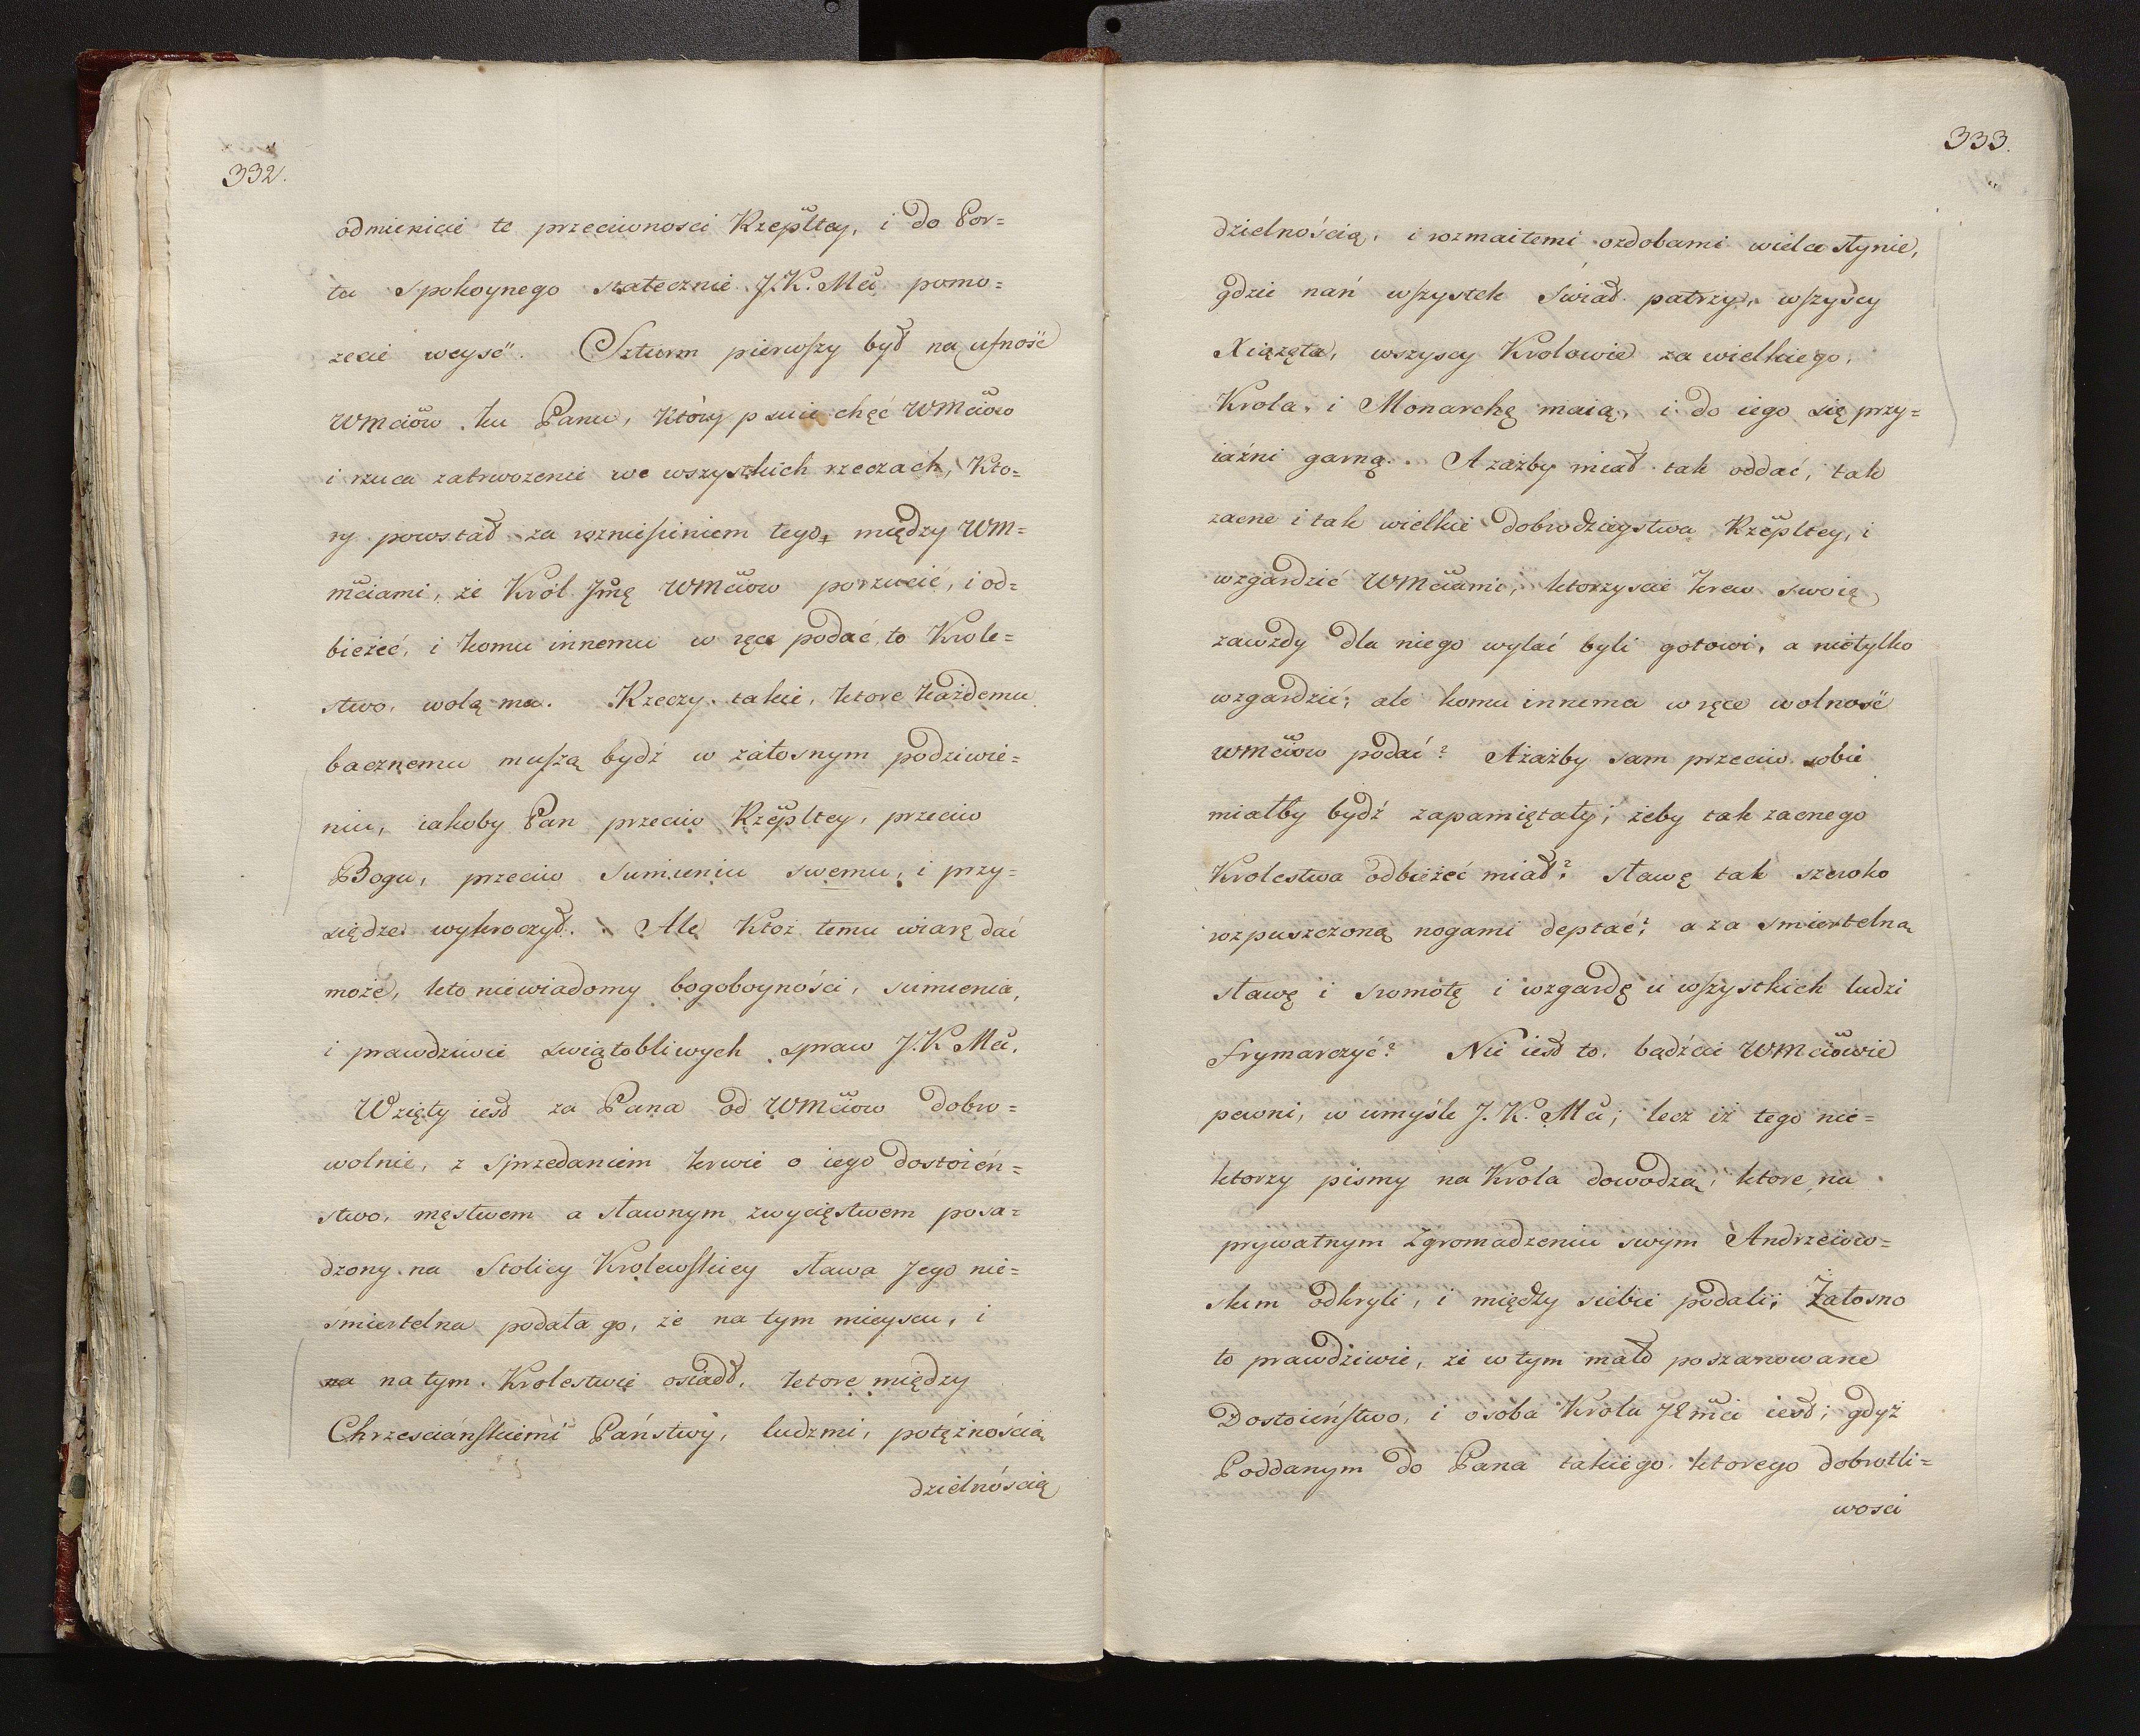 332.
odmienicie te przeciwnosci Rzepltey, i do Por=
tu Spokoynego statecznie J.K.Mci pomo=
zecie weysć. Szturm pierwszy był na ufność
WMciow ku Panu, ktory psuie chęć WMciow
i rzuca zatrwozenie we wszystkich rzeczach, kto=
ry powstał za rozniesieniem tego, między WM=
mciami, że Król Jmę WMciow porzucić, i od=
bieżeć, i komu innemu w ręce podać to Krole=
stwo, wolą ma. Rzeczy takie, ktore każdemu
bacznemu muszą bydź w żałosnym podziwie=
niu, iakoby Pan przeciw Rzepltey, przeciw
Bogu, przeciw Sumieniu swemu, i przy=
siędze wykroczył. Ale Ktoż temu wiarę dać
może, kto niewiadomy bogoboyności, sumienia,
i prawdziwie swiątobliwych spraw J.K Mci.
Wzięty iest za Pana od WMciow dobro=
wolnie, z Sprzedaniem krwie o iego dostoień=
stwo, męstwem a sławnym zwycięstwem posa=
dzony na Stolicy Krolewskiey sława Jego nie=
śmiertelna podała go, że na tym mieyscu, i
na na tym Krolestwie osiadł, ktore między
Chrzesciańskiemi Państwy, ludzmi, potężnością
dzielnóscią
333.
dzielnością, i rozmaitemi ozdobami wielce słynie,
gdzie nań wszystek świat patrzy, wszyscy
Xiązęta, wszyscy Krolowie za wielkiego
Krola, i Monarchę maią, i do iego się przy=
iaźni garną. Azażby miał tak oddać, tak
zacne i tak wielkie dobrodzieystwa Rzepltey, i
wzgardzić WMciami, ktorzyscie krew swoię
zawżdy dla niego wylać byli gotowi, a nietylko
wzgardzić; ale komu innema w ręce wolność
WMciow podać? Ażażby sam przeciw sobie
miałby bydź zapamiętały, żeby tak zacnego
Krolestwa odbieżeć miał? sławę tak szeroko
rozpuszczoną nogami deptać? a za smiertelną
sławę i sromotę i wzgardę u wszystkich ludzi
frymarczyć? Nie iest to, bądźcie WMciowie
pewni, w umyśle J.K.Mci; lecz iż tego nie=
ktorzy pismy na Krola dowodzą, ktore na
prywatnym Zgromadzeniu swym Andrzeiow=
skim odkryli, i między siebie podali; Żałosno
to prawdziwie, że w tym mało poszanowane
Dostoieństwo, i osoba Krola JEmci iest; gdyż
Poddanym do Pana takiego, ktorego dobrotli=
wosci